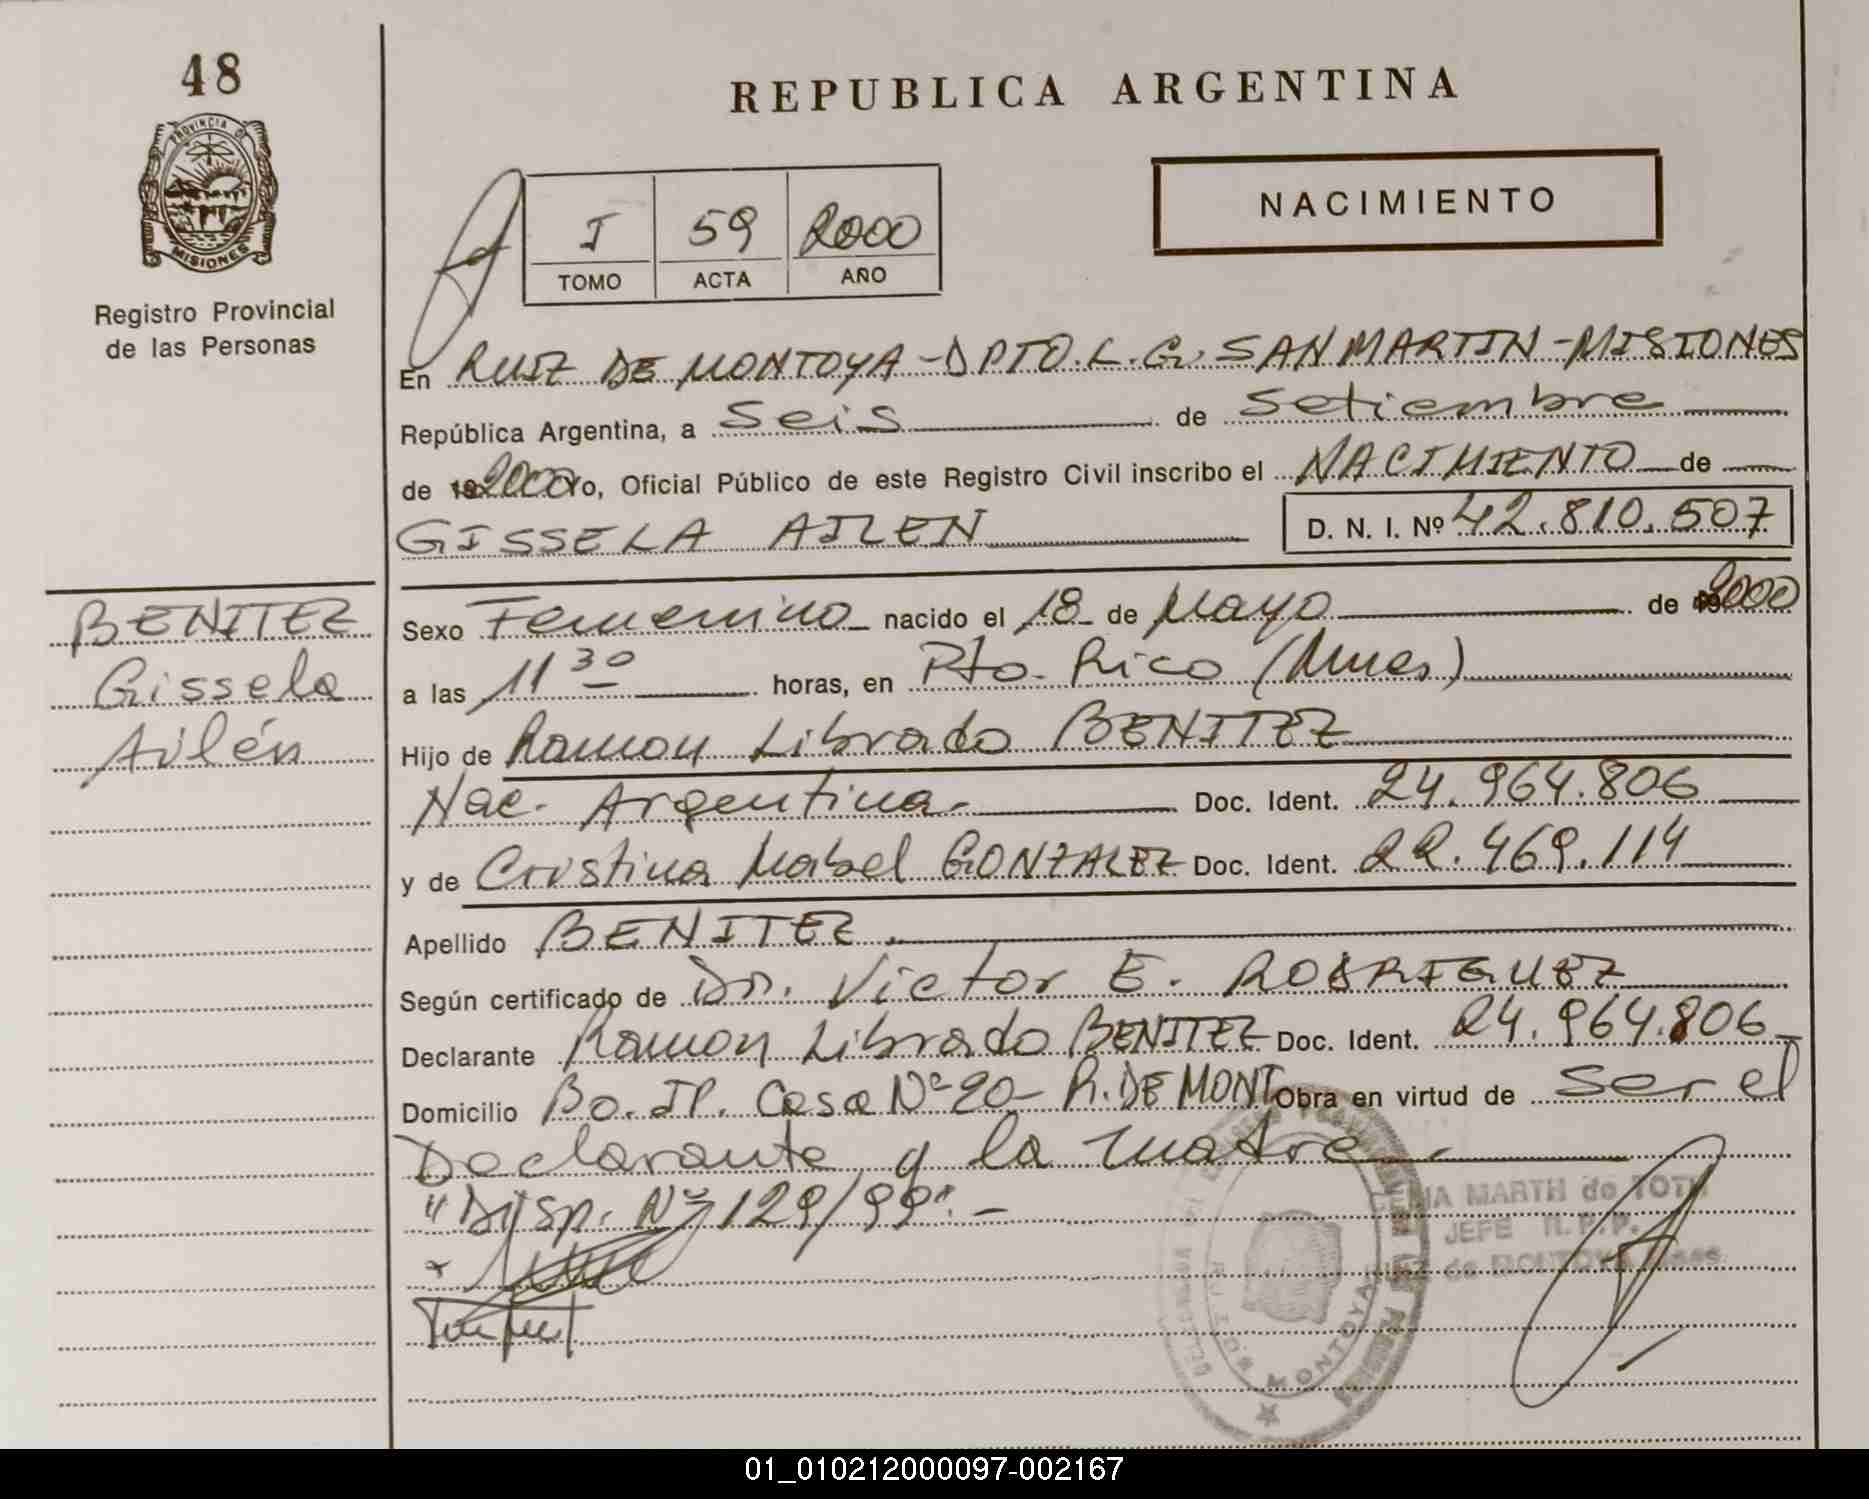 48
PROVINCIA DE
MISIONES
Registro Provincial
de las Personas
BENITEZ
Gissela
Ailén
REPUBLICA ARGENTINA
NACIMIENTO
I 59 2000
TOMO ACTA AÑO
En RUIZ DE MONTOYA - DPTO. L. G. SAN MARTIN - MISIONES
República Argentina, a Seis de Setiembre
de 2000 Yo, Oficial Público de este Registro Civil inscribo el NACIMIENTO de
GISSELA AILEN D. N. I. Nº 42.810.507
Sexo Femenino nacido el 18 de Mayo de 2000
a las 11 30 horas, en Pto. Rico (Mnes)
Hijo de Ramon Librado BENITEZ
Nac. Argentina. Doc. Ident. 24.964.806
y de Cristina Mabel GONZALEZ Doc. Ident. 22.469.114
Apellido BENITEZ.
Según certificado de Dr. Victor E. RODRIGUEZ
Declarante Ramon Librado BENITEZ Doc. Ident. 24.964.806
Domicilio Bo. IP. Casa Nº 20 - R. DE MONT Obra en virtud de Ser el
Declarante y la madre.
"Disp. Nº 129/99". -
MARTH de TOTH
JEFE R.P.P.
de MONTOYA
RUIZ DE MONTOYA
01_010212000097-002167